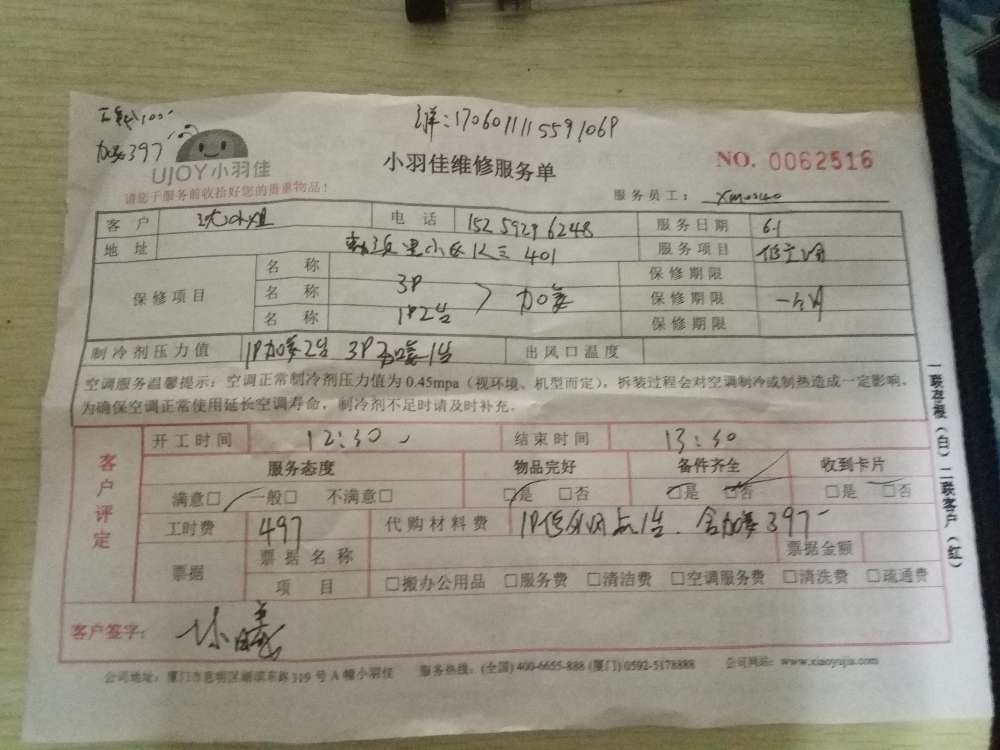 加氟397
单:17060111155591069
UJOY小羽佳
小羽佳维修服务单
NO. 0062516
请您于服务前收拾好您的贵重物品!
服务员工:
客 户 电 话 15259296248 服务日期 6.1
地 址 401 服务项目
保修项目 名 称 3P 保修期限
名 称 加氟 保修期限
名 称 1P2台 保修期限
制冷剂压力值 1P加氟2台 3P加氟1台 出风口温度
空调服务温馨提示:空调正常制冷剂压力值为0.45mpa(视环境、机型而定),拆装过程会对空调制冷或制热造成一定影响,
为确保空调正常使用延长空调寿命,制冷剂不足时请及时补充。
客户评定
开工时间 12:30 结束时间 13:30
服务态度 物品完好 备件齐全 收到卡片
满意□ 一般□ 不满意□ □是 □否 □是 □否 □是 □否
工时费 497 代购材料费 1P 1台. 含加氟397
票据 票据名称 票据金额
项 目 □搬办公用品 □服务费 □清洁费 □空调服务费 □清洗费 □疏通费
客户签字:
公司地址:厦门市思明区湖滨东路319号A幢小羽佳 服务热线:(全国)400-6655-888 (厦门)0592-5178888 公司网站:www.xiaoyujia.com
一联存根(白)二联客户(红)